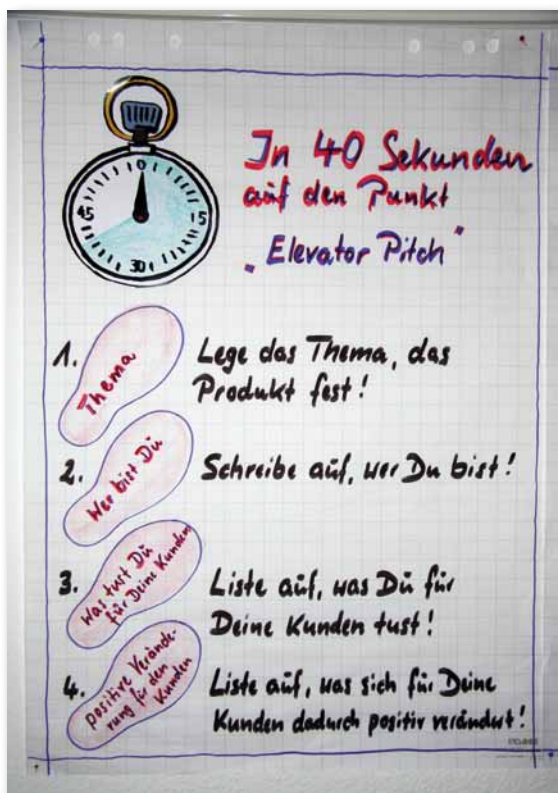 0
45
15
30
In 40 Sekunden
auf den Punkt
"Elevator Pitch"
1.
Thema
Lege das Thema, das
Produkt fest!
2.
Wer bist Du
Schreibe auf, wer Du bist!
3.
Was tust Du
für Deine Kunden
Liste auf, was Du für
Deine Kunden tust!
4.
positive Verände-
rung für den
Kunden
Liste auf, was sich für Deine
Kunden dadurch positiv verändert!